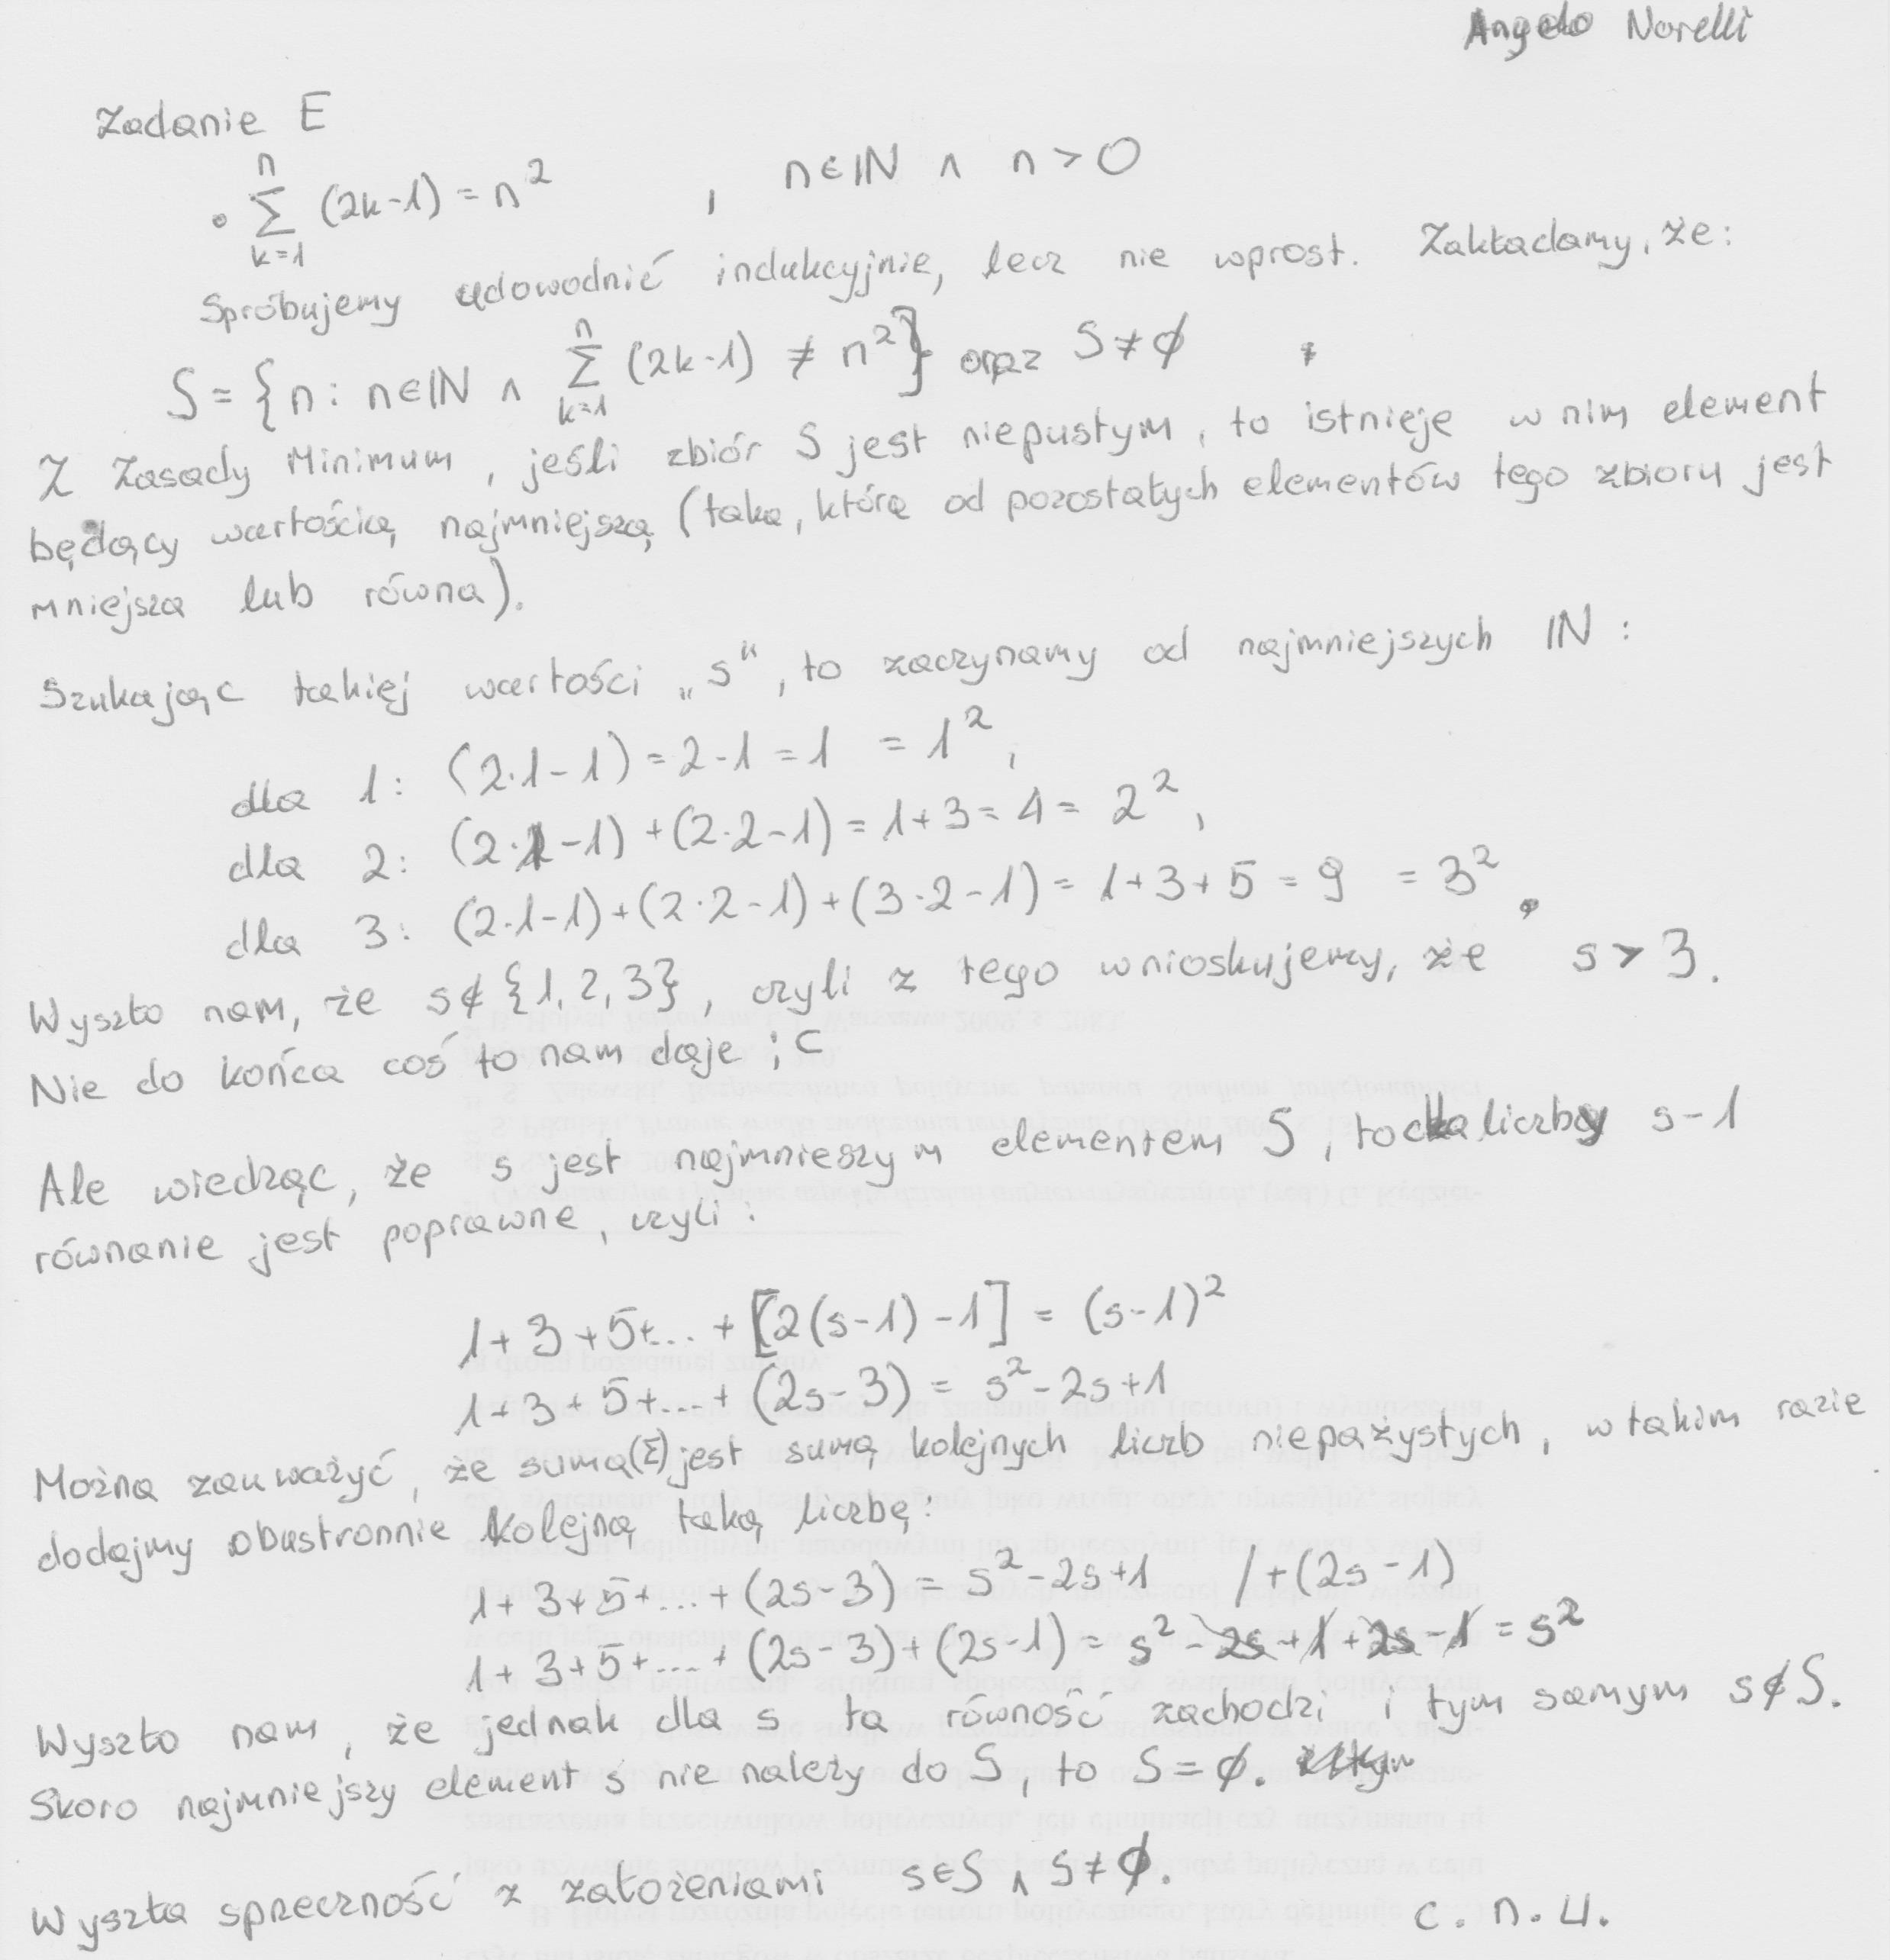 Angelo Norelli
Zadanie E
• ∑_{k=1}^{n} (2k-1) = n² , n∈ℕ ∧ n>0
Spróbujemy udowodnić indukcyjnie, lecz nie wprost. Zakładamy, że:
S = {n : n∈ℕ ∧ ∑_{k=1}^{n} (2k-1) ≠ n²} oraz S≠∅
Z Zasady Minimum, jeśli zbiór S jest niepustym, to istnieje w nim element
będący wartością najmniejszą (taka, która od pozostałych elementów tego zbioru jest
mniejsza lub równa).
Szukając takiej wartości „s", to zaczynamy od najmniejszych ℕ :
dla 1: (2·1-1) = 2-1 = 1 = 1²,
dla 2: (2·1-1)+(2·2-1) = 1+3 = 4 = 2²,
dla 3: (2·1-1)+(2·2-1)+(3·2-1) = 1+3+5 = 9 = 3².
Wyszło nam, że s∉{1,2,3}, czyli z tego wnioskujemy, że s>3.
Nie do końca coś to nam daje ;c
Ale wiedząc, że s jest najmnieszym elementem S, to dla liczby s-1
równanie jest poprawne, czyli:
1+3+5+...+[2(s-1)-1] = (s-1)²
1+3+5+...+(2s-3) = s²-2s+1
Można zauważyć, że suma(Σ) jest sumą kolejnych liczb niepażystych, w takim razie
dodajmy obustronnie kolejną taką liczbę:
1+3+5+...+(2s-3) = s²-2s+1 /+(2s-1)
1+3+5+...+(2s-3)+(2s-1) = s²-2s+1+2s-1 = s²
Wyszło nam, że jednak dla s ta równość zachodzi i tym samym s∉S.
Skoro najmniejszy element s nie należy do S, to S=∅.
Wyszła sprzeczność z założeniami s∈S ∧ S≠∅.
c.n.u.